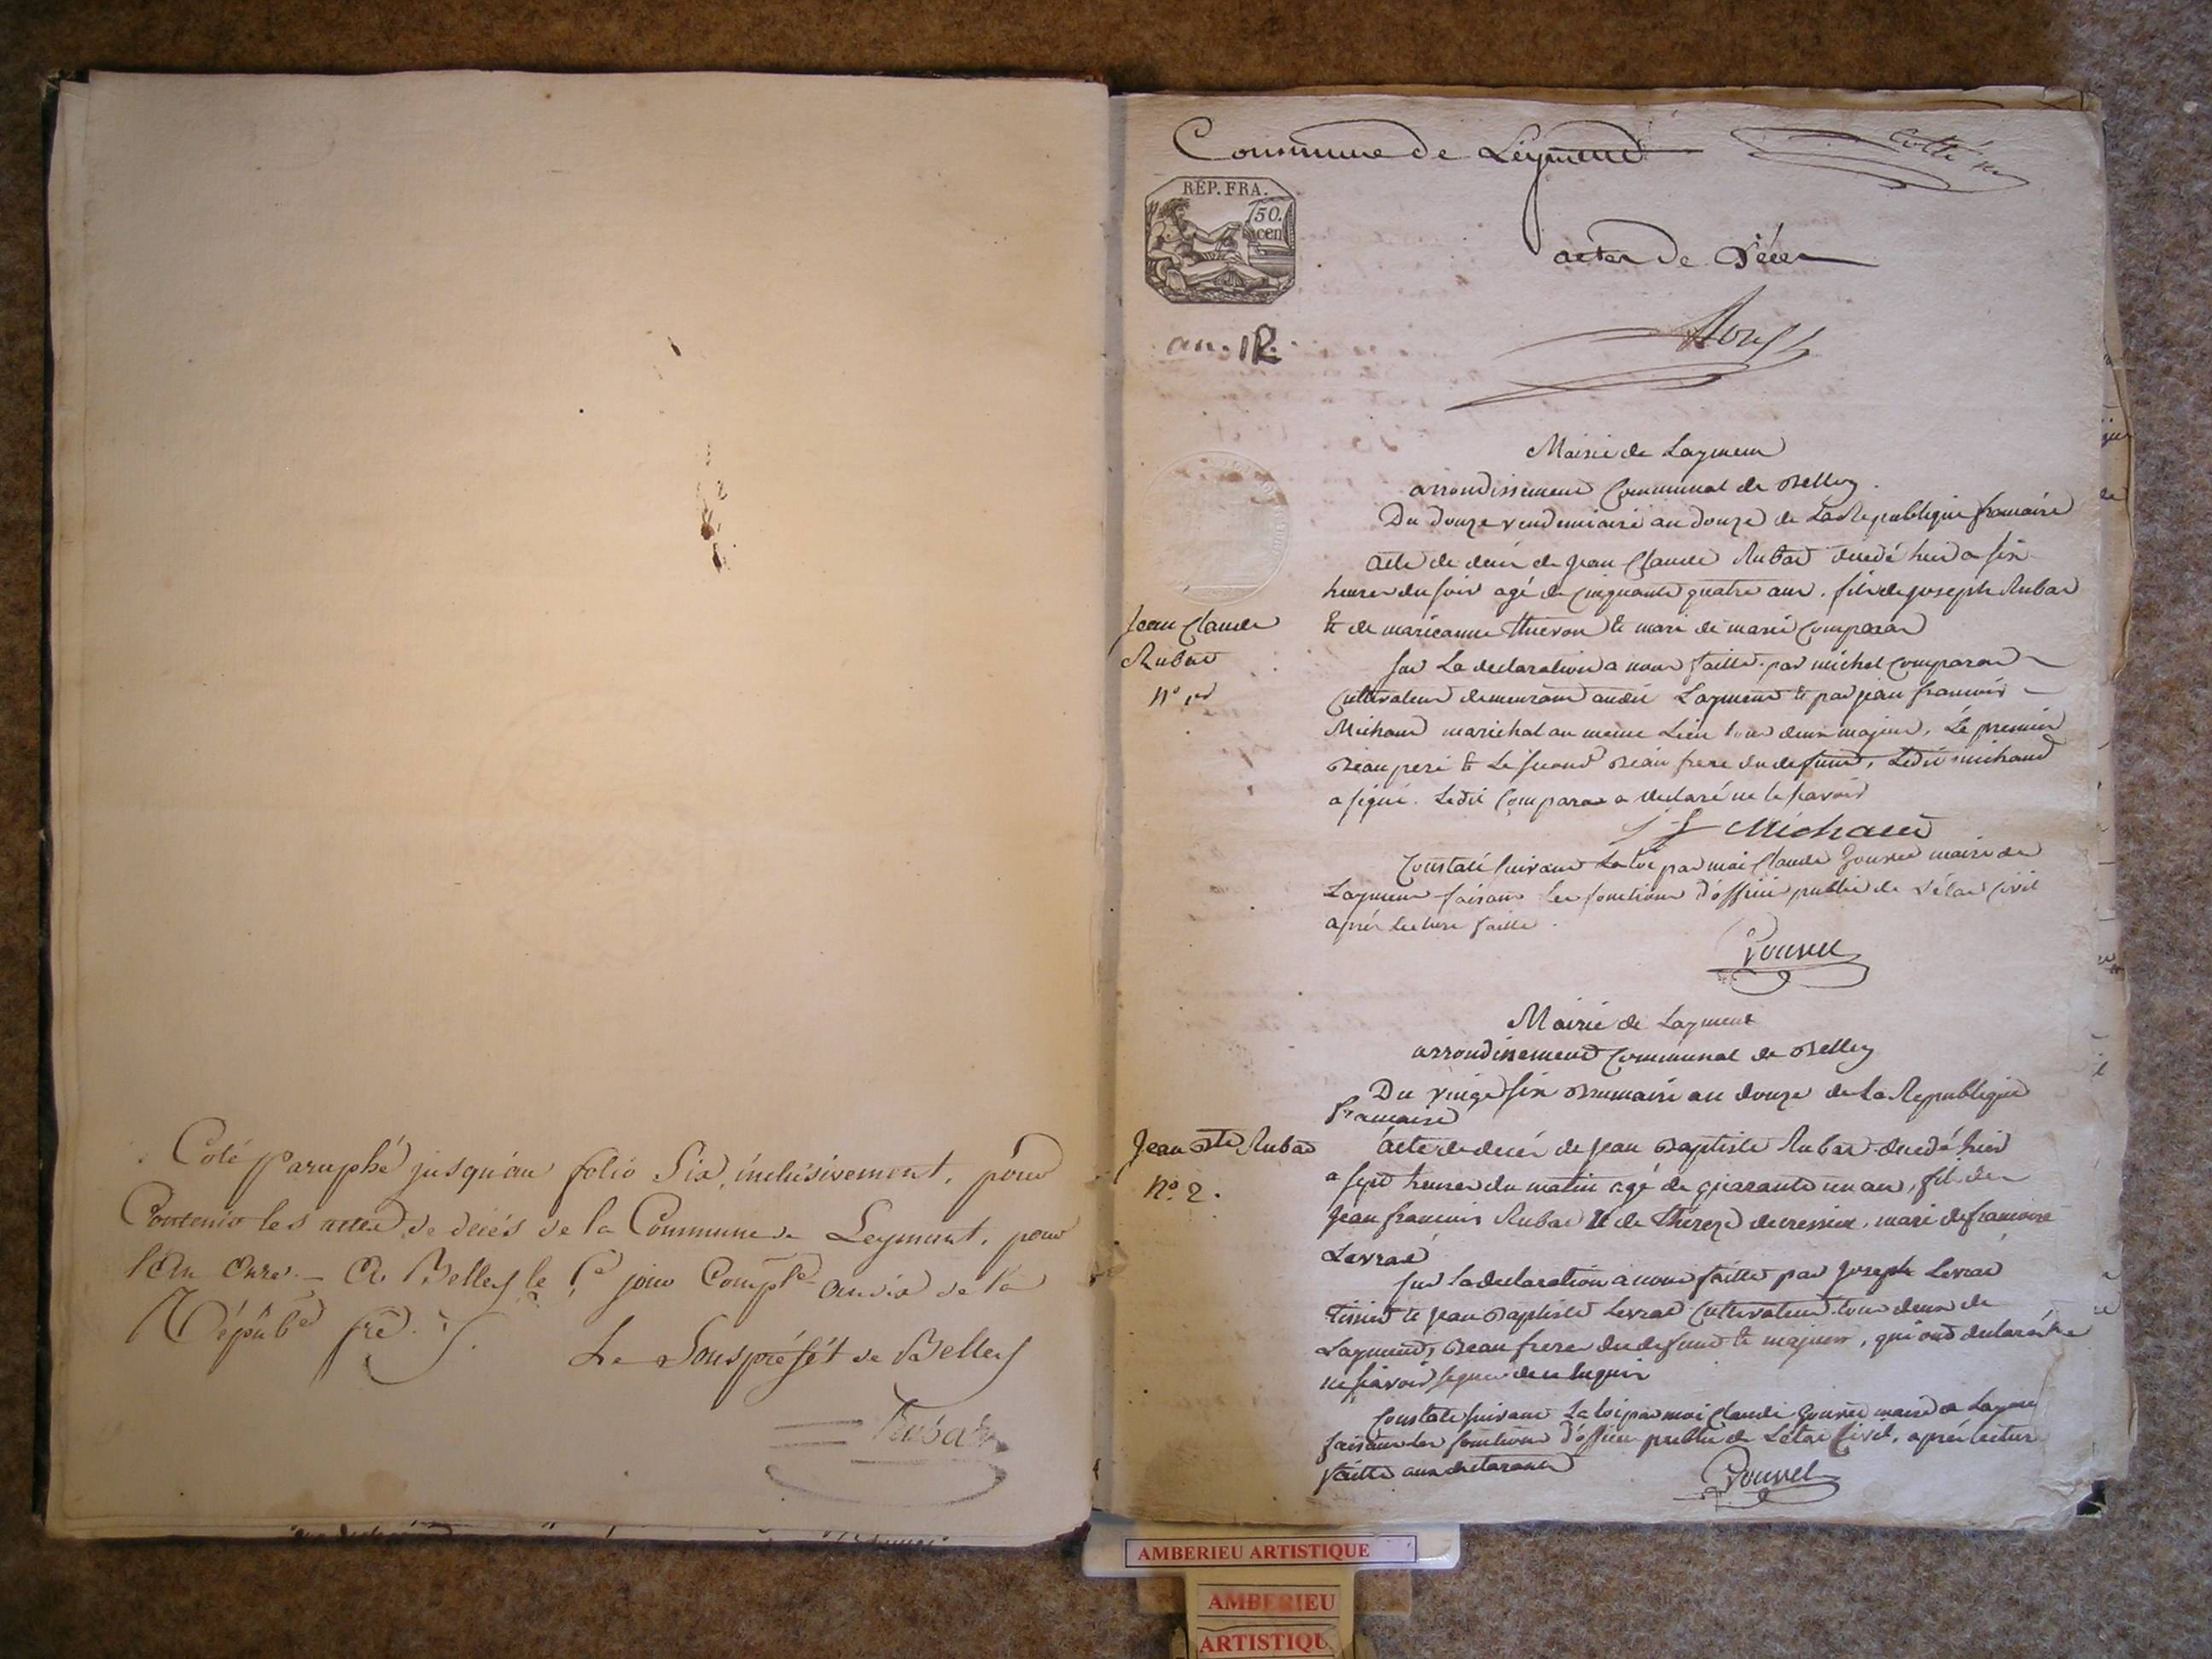 Coté paraphé jusqu'au folio Six, inclusivement, pour
Contenir les actes de decés de la Commune de Leymant, pour
l'An onze. — A Belley le jour Comple an dix de la
Répub fse
Le Sous préfét de Belley
Rubat
Commune de Leyment
REP. FRA.
50.
cen
actes de Décès
an. 12.
Mairie de Laymen
arrondissement Communal de Belley.
Du douze vendemiaire an douze de La Republique francaise
Acte de décés de Jean Claude Rubat decedé hier a six
heures du soir agé de Cinquante quatre ans. fils de joseph Rubat
Jean Claude
Rubat
n° 1er
& de marieanne thievon & mari de marie Comparat
Sur La declaration a nous faitte par michel Comparat
Cultivateur demeurant audit Layment & par jean francois
Michaud marichal au meme Lieu tous deux majeurs, Le premier
Beau pere & Le second Beau frere du defunt, Ledit michaud
a signé. Ledit Comparat a declaré ne le savoir
J f Michaud
Constaté suivant La loi par moi Claude Gouvet maire de
Laymen faisant les fonctions d'officier public de L'état civil
après lecture faitte.
Gouvet
Mairie de Layment
arrondissement Communal de Belley
Du vingt six Brumaire an douze de La Republique
francaise
Jean Bte Rubat
n°. 2.
Acte de decés de Jean Baptiste Rubat decedé hier
a sept heures du matin agé de quarante un ans, fils de
Jean francois Rubat & de thereze decressieu, mari de francoise
Levrat
Sur La declaration a nous faitte par Joseph Levrat
tissier & Jean Baptiste Levrat Cultivateur tous deux de
Layment, Beau frere du defunt & majeurs, qui ont declaré
ne savoir signer de ce requis
Constaté suivant La loi par moi Claude Gouvet maire de Layme
faisant les fonctions d'officier public de L'état Civil, après lecture
faitte aux declarants
Gouvet
AMBERIEU ARTISTIQUE
AMBERIEU
ARTISTIQU